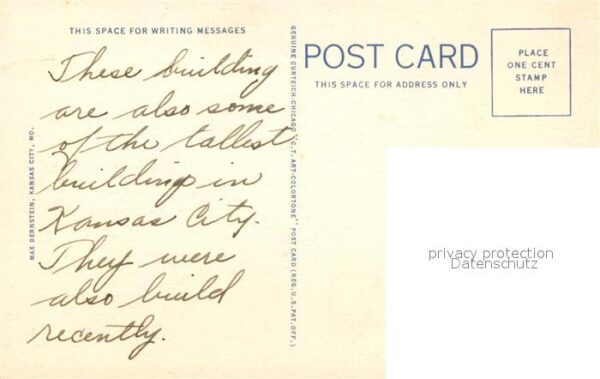 THIS SPACE FOR WRITING MESSAGES
These building
are also some
of the tallest
building in
Kansas City.
They were
also build
recently.
MAX BERNSTEIN, KANSAS CITY, MO.
GENUINE CURTEICH-CHICAGO "C.T. ART-COLORTONE" POST CARD (REG. U.S. PAT. OFF.)
POST CARD
THIS SPACE FOR ADDRESS ONLY
PLACE
ONE CENT
STAMP
HERE
privacy protection
Datenschutz